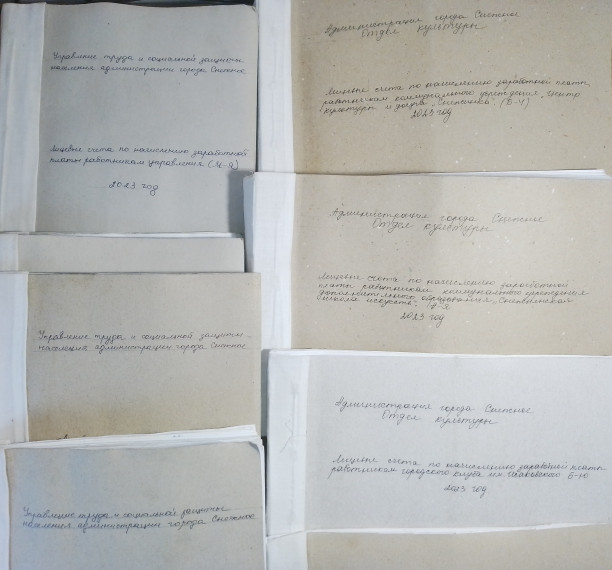 Управление труда и социальной защиты
населения администрации города Снежное
Лицевые счета по начислению заработной
платы работникам управления (М-Я)
2023 год
Управление труда и социальной защиты
населения администрации города Снежное
Управление труда и социальной защиты
населения администрации города Снежное
Администрация города Снежное
Отдел культуры
Лицевые счета по начислению заработной платы
работникам коммунального учреждения „Центр
культуры и досуга „Снежинка" (Б-Ч)
2023 год
Администрация города Снежное
Отдел культуры
Лицевые счета по начислению заработной
платы работникам коммунального учреждения
дополнительного образования „Снежнянская
школа искусств"
2023 год
Администрация города Снежное
Отдел культуры
Лицевые счета по начислению заработной платы
работникам городского клуба им. Б-Ю
2023 год